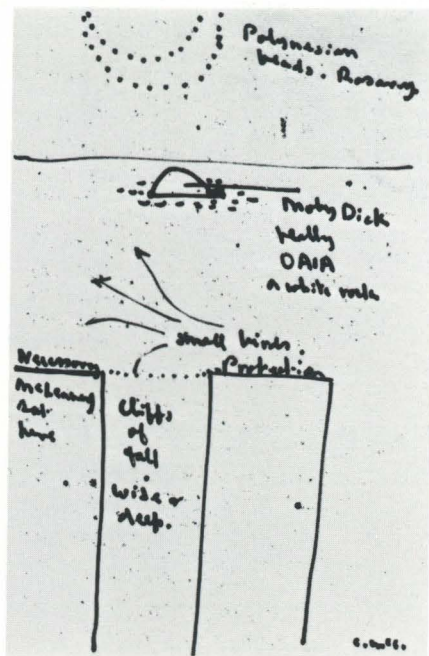 Polynesian
beads. Rosary
Moby Dick
really
OAIA
a white rock
small birds.
Necessary
Protection
sat
here
Cliffs
of
fall.
wide &
deep.
C.McC.